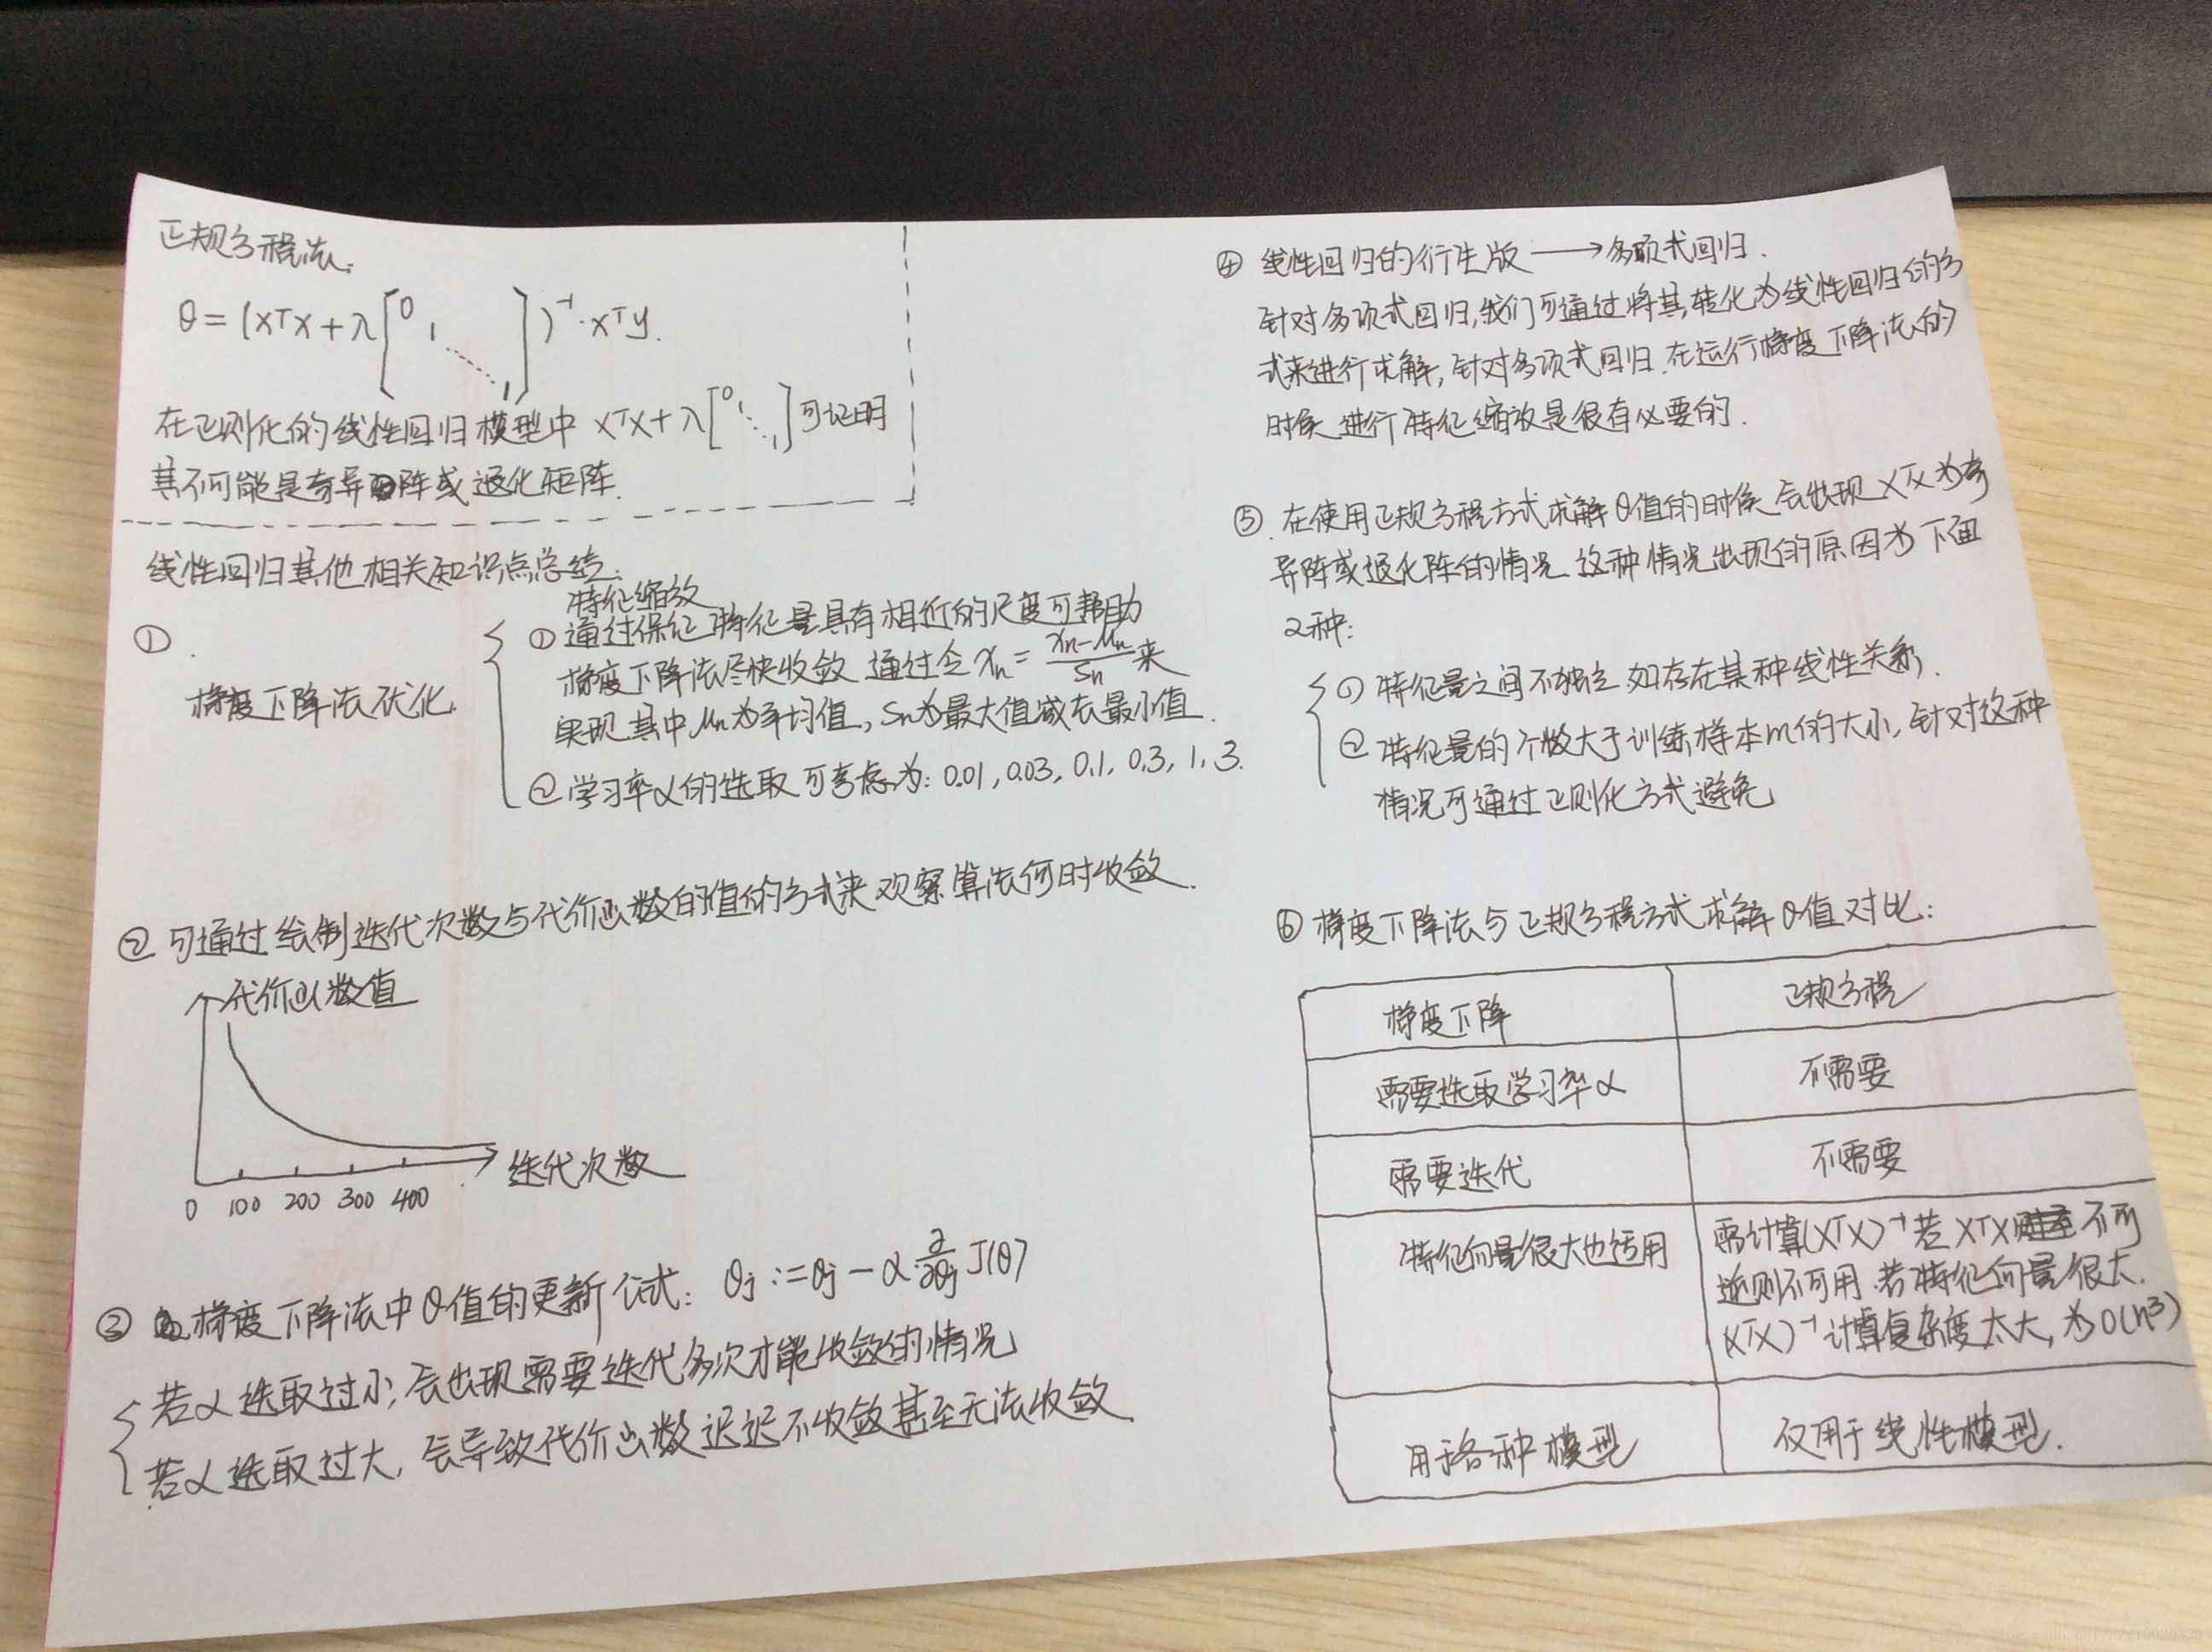 正规方程法:
θ = (XᵀX + λ[0 1 ⋱ 1])⁻¹·Xᵀy.
在正则化的线性回归模型中 XᵀX + λ[0 1 ⋱ 1] 可证明
其不可能是奇异阵或退化矩阵.
线性回归其他相关知识点总结:
①.
梯度下降法优化.
特征缩放
① 通过保证特征量具有相近的尺度可帮助
梯度下降法尽快收敛 通过令 xn = (xn-μn)/Sn 来
实现 其中 μn为平均值, Sn为最大值减去最小值.
② 学习率α的选取可考虑为: 0.01, 0.03, 0.1, 0.3, 1, 3.
② 可通过绘制迭代次数与代价函数的值的方式来观察算法何时收敛.
代价函数值
迭代次数
0 100 200 300 400
③ 梯度下降法中θ值的更新公式: θj := θj - α ∂/∂θj J(θ)
若α选取过小, 会出现需要迭代多次才能收敛的情况
若α选取过大, 会导致代价函数迟迟不收敛甚至无法收敛.
④ 线性回归的衍生版 → 多项式回归.
针对多项式回归,我们可通过将其转化为线性回归的方
式来进行求解, 针对多项式回归.在运行梯度下降法的
时候 进行特征缩放是很有必要的.
⑤. 在使用正规方程方式求解θ值的时候 会出现 XᵀX 为奇
异阵或退化阵的情况. 这种情况出现的原因为下面
2种:
① 特征量之间不独立 如存在某种线性关系.
② 特征量的个数大于训练样本m的大小, 针对这种
情况可通过正则化方式避免
⑥ 梯度下降法与正规方程方式求解θ值对比:
梯度下降 正规方程
需要选取学习率α 不需要
需要迭代 不需要
特征向量很大也适用 需计算(XᵀX)⁻¹ 若 XᵀX 不可
逆则不可用.若特征向量很大.
(XᵀX)⁻¹计算复杂度太大, 为O(n³)
用于各种模型 仅用于线性模型.